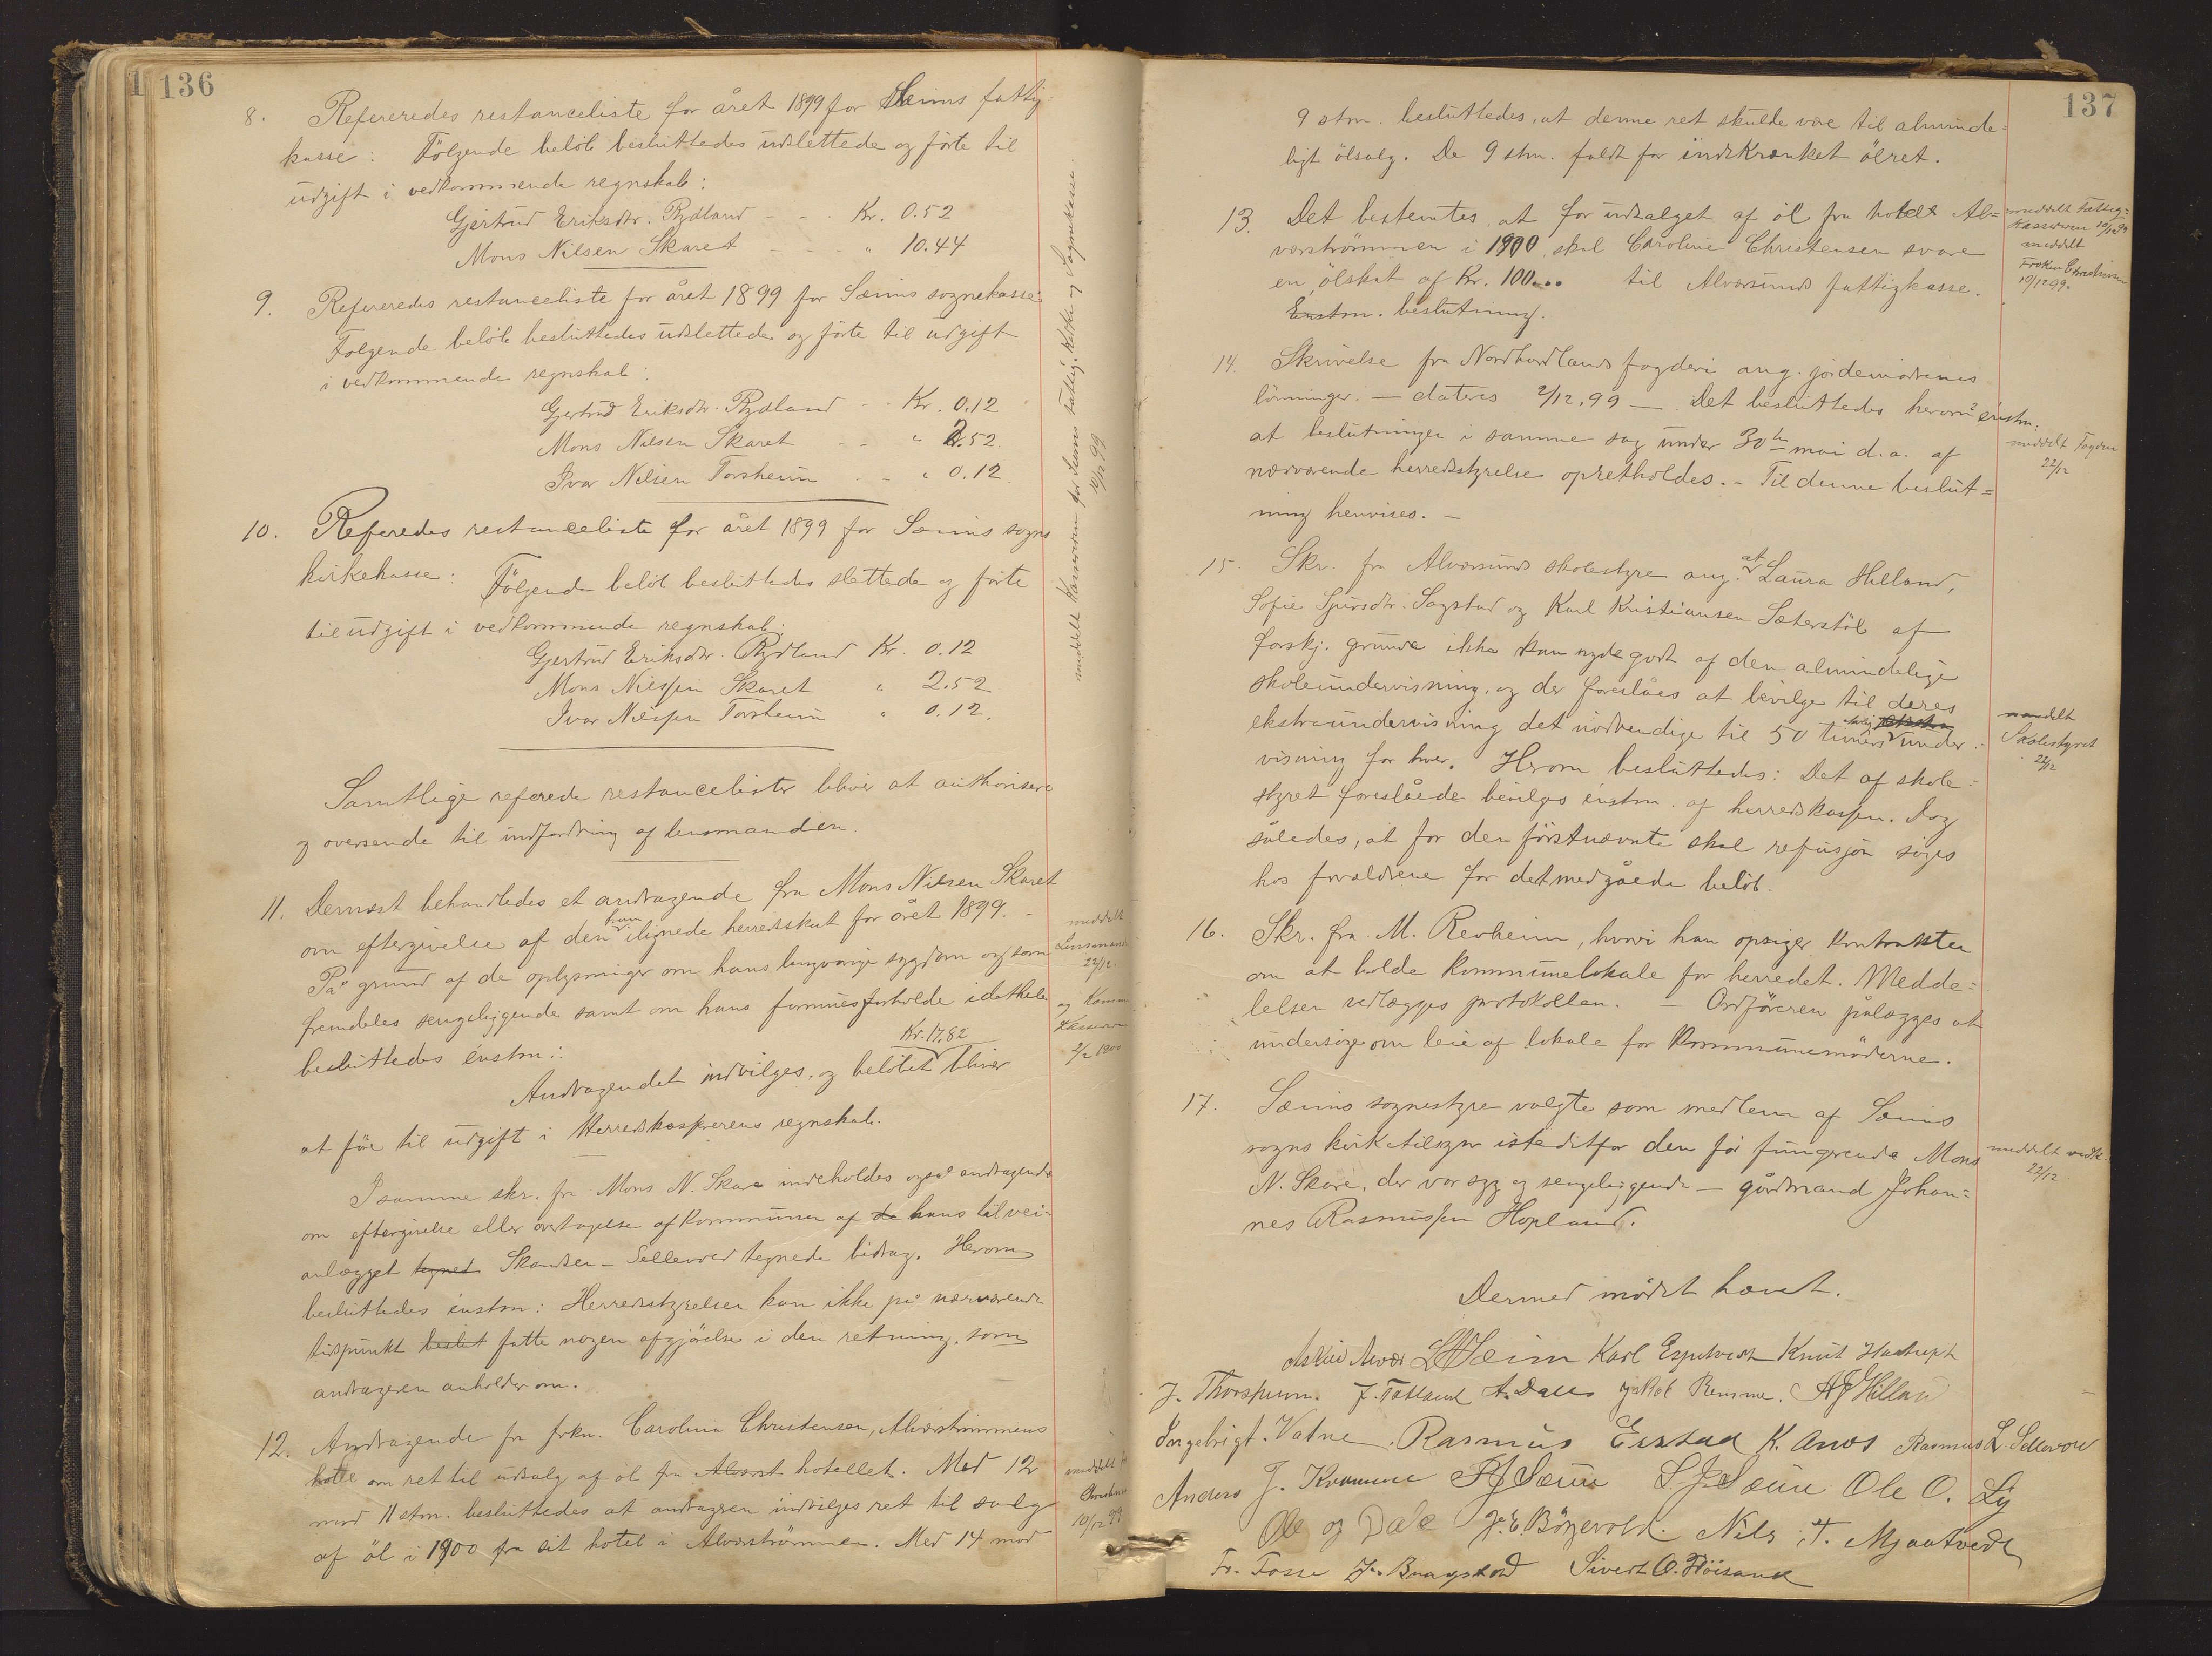 136
8. Refereredes restanceliste for året 1899 for Seims fattig-
kasse: Følgende beløb besluttedes udslettede og førte til
udgift i vedkommende regnskab:
Gjertrud Eriksdtr. Rydland - - - Kr. 0.52
Mons Nilsen Skaret - - - " 10.44
9. Refereredes restanceliste for året 1899 for Sæims sognekasse:
Følgende beløb besluttedes udslettede og førte til udgift
i vedkommende regnskab:
Gjertrud Eriksdtr. Rydland - - Kr. 0.12
Mons Nilsen Skaret - - " 2.52
Ivar Nilsen Torsheim - - " 0.12
10. Referedes restanceliste for året 1899 for Sæims sogns
kirkekasse: Følgende beløb besluttedes slettede og førte
til udgift i vedkommende regnskab:
Gjertrud Eriksdtr. Rydland Kr. 0.12
Mons Nilssen Skaret " 2.52
Ivar Nilssen Torsheim " 0.12.
meddelt Kassereren for Seims Fattig, Kirke og Sognekasse.
10/12 99
Samtlige referede restancelister bliver at authorisere
og oversende til indfordring af lensmanden.
11. Dernæst behandledes et andragende fra Mons Nilsen Skaret
om eftergivelse af den ham ilignede herredsskat for året 1899. -
På grund af de oplysninger om hans langvarige sygdom og som
fremdeles sengeliggende samt om hans formuesforholde idethele
besluttedes énstm:
Andragendet indvilges, og beløbet Kr. 17,82 bliver
at føre til udgift i Herredskassererens regnskab.
meddelt
Lensmand
22/12.
og Komm
Kasserer
2/2 1900
I samme skr. fra Mons N. Skare indeholdes også andragende
om eftergivelse eller overtagelse af kommunen af de hans til vei-
anlægget tegnet Skandsen - Sellevold tegnede bidrag. Herom
besluttedes énstm: Herredsstyrelsen kan ikke på nærværende
tidspunkt beslut fatte nogen afgjørelse i den retning, som
andrageren anholder om.
12. Andragende fra frkn. Carolina Christensen, Alværstrømmens
hotel om ret til udsalg af øl fra Alværst hotellet. Med 12
mod 11 stm. besluttedes at andrageren indvilges ret til salg
af øl i 1900 fra sit hotel i Alværstrømmen. Med 14 mod
meddelt
10/12 99
137
9 stm. besluttedes, at denne ret skulde være til alminde-
ligt ølsalg. De 9 stm. faldt for indskrænket ølret.
13. Det bestemtes at for udsalget af øl fra hotell Al-
værstrømmen i 1900 skal Caroline Christensen svare
en ølskat af Kr. 100... til Alversunds fattigkasse.
Enstm. beslutning.
meddelt Fattig-
Kassereren 10/12 99
meddelt
Frøken Christensen
10/12 99.
14. Skrivelse fra Nordhordlands fogderi ang. jordemødrenes
lønninger. - dateres 2/12.99 - Det besluttedes herom énstm:
at beslutningen i samme sag under 30te mai d.a. af
nærværende herredsstyrelse opretholdes. - Til denne beslut-
ning henvises. -
meddelt Fogden
22/12
15. Skr. fra Alversunds skolestyre ang. at Laura Helland,
Sofie Sjursdtr. Sagstad og Karl Kristiansen Sæterstøl af
forskj. grunde ikke kan nyde godt af den almindelige
skoleundervisning, og der foreslåes at bevilge til deres
ekstraundervisning det nødvendige til 50 timers under-
visning for hver. Herom besluttedes: Det af skole-
styret foreslåede bevilges énstm. af herredskassen. Dog
således, at for den førstnævnte skal refusjon søges
hos forældrene for det medgåede beløb.
meddelt
Skolestyret
22/12
16. Skr. fra M. Revheim, hvori han opsiger kontrakten
om at holde kommunelokale for herredet. Medde-
lelsen vedlægges protokollen. - Ordføreren pålægges at
undersøge om leie af lokale for kommunemøderne.
17. Sæims sognestyre valgte som medlem af Sæims
sogns kirketilsyn istedetfor den før fungerende Mons
N. Skare, der var syg og sengeliggende - gårdmand Johan-
nes Rasmussen Hopland.
meddelt vedk.
22/12.
Dermed mødet hævet.
L Sæim Karl Espetvedt Knut Hastrept
J. Thorsheim. J. Tatland A. Dale Jakob Remme. A J Helland
Ingebrigt. Vatne. Rasmus Eistad K. Anos Rasmus L. Sellevold
Anders J. Kvamme R J Sæim L. J. Sæim Ole O. Ly
Ole og Dale J. E. Bøgevold. Nils T. Mjaatvedt
Fr. Fosse J. Braystad Sivert O. Fløisand